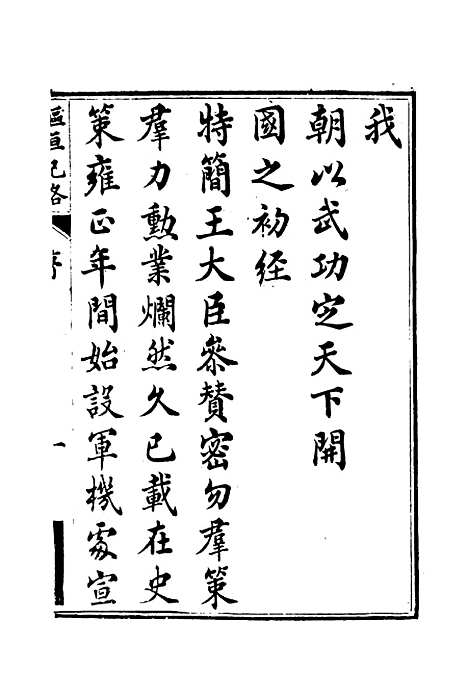 我
朝以武功定天下開
國之初經
特簡王大臣叅贊密勿羣策
羣力勳業爛然久已載在史
策雍正年間始設軍機處宣
樞垣記略
序
一